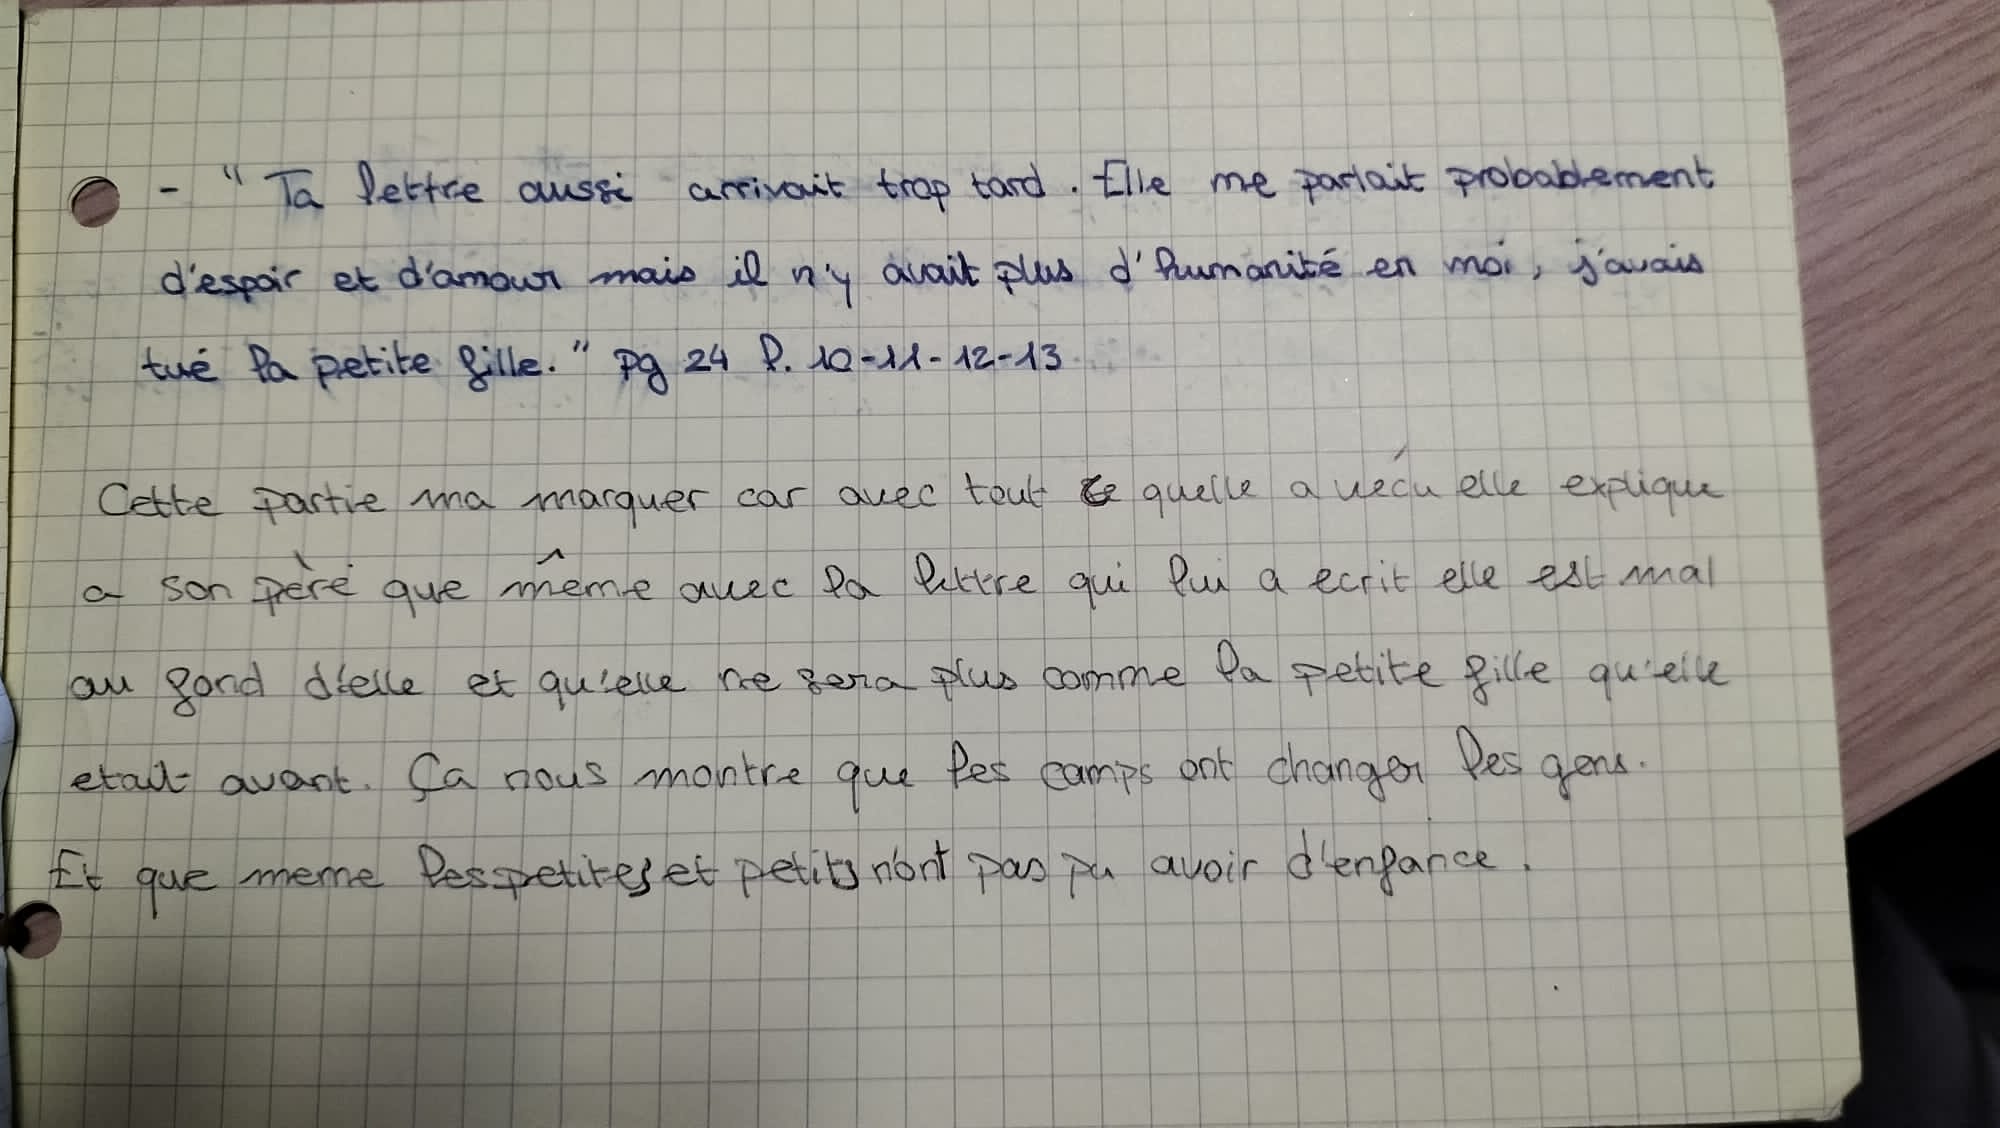 - "Ta lettre aussi arrivait trop tard. Elle me parlait probablement
d'espoir et d'amour mais il n'y avait plus d'humanité en moi, j'avais
tué la petite fille." pg 24 l. 10-11-12-13
Cette partie ma marquer car avec tout ce quelle a vécu elle explique
a son père que même avec la lettre qui lui a ecrit elle est mal
au fond d'elle et qu'elle ne sera plus comme la petite fille qu'elle
etait avant. Ça nous montre que les camps ont changer les gens.
Et que meme les petites et petits n'ont pas pu avoir d'enfance.